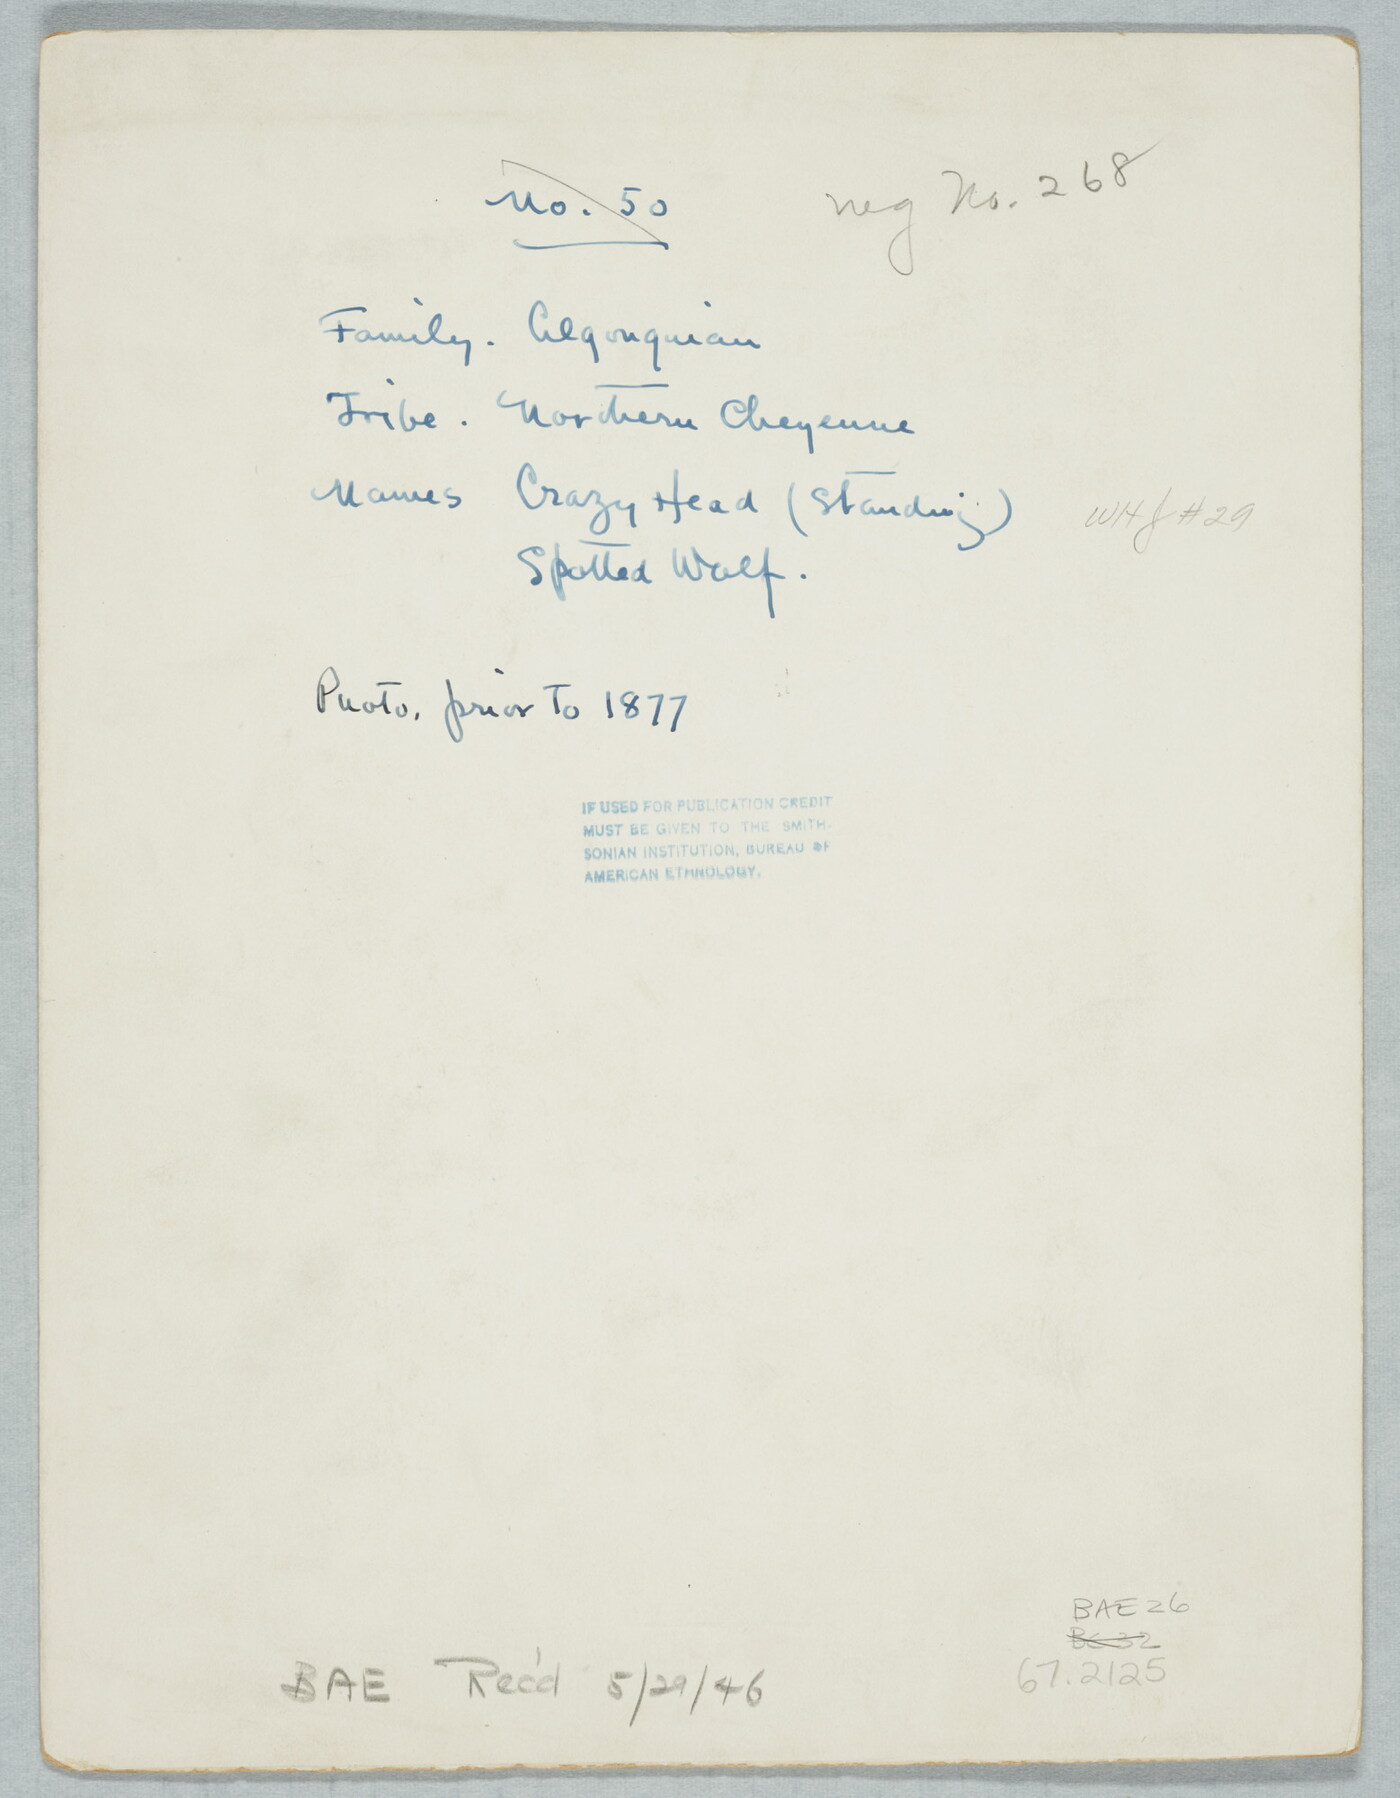 No. 50
neg No. 268
Family. Algonquian
Tribe. Northern Cheyenne
Names Crazy Head (Standing)
WHJ #29
Spotted Wolf.
Photo, prior to 1877
IF USED FOR PUBLICATION CREDIT
MUST BE GIVEN TO THE SMITH-
SONIAN INSTITUTION, BUREAU OF
AMERICAN ETHNOLOGY.
BAE 26
67.2125
BAE Rec'd 5/29/46